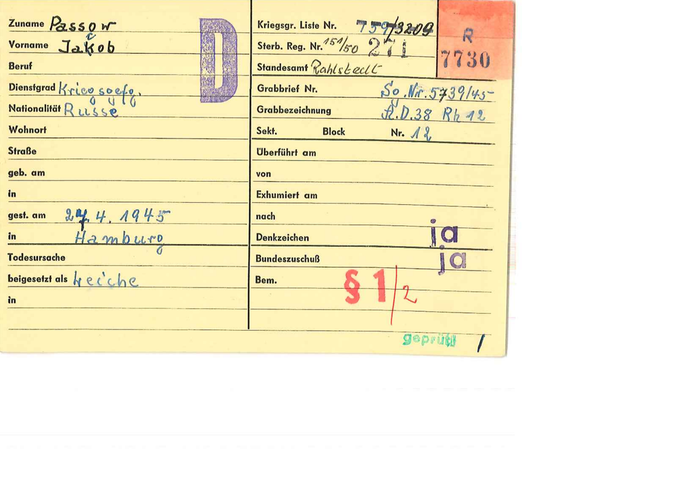 Zuname Passow
Vorname Jakob
Beruf
Dienstgrad Kriegsgefg.
Nationalität Russe
Wohnort
Straße
geb. am
in
gest. am 27.4.1945
in Hamburg
Todesursache
beigesetzt als Leiche
in
D
Kriegsgr. Liste Nr. 759/73209
Sterb. Reg. Nr. 151/50 271
Standesamt Rahlstedt
R
7730
Grabbrief Nr. So.Nr.5739/45
Grabbezeichnung A.D.38 Rh 12
Sekt. Block Nr. 12
Überführt am
von
Exhumiert am
nach
Denkzeichen ja
Bundeszuschuß ja
Bem. § 1/2
geprüft /